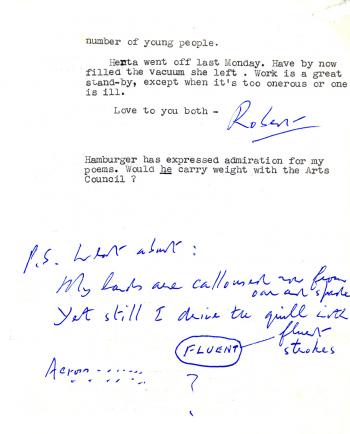 number of young people.
Henta went off last Monday. Have by now
filled the vacuum she left . Work is a great
stand-by, except when it's too onerous or one
is ill.
Love to you both -
Robert
Hamburger has expressed admiration for my
poems. Would he carry weight with the Arts
Council ?
P.S. What about :
My hands are calloused now from
oar and spade
Yet still I drive the quill with
fluent
strokes
FLUENT
?